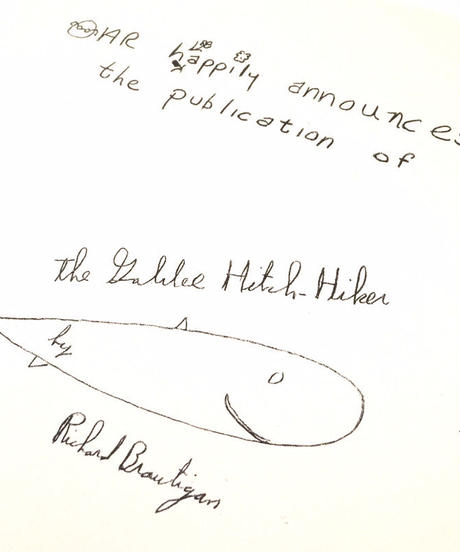 OAR happily announces
the publication of
the Galilee Hitch-Hiker
by
Richard Brautigan